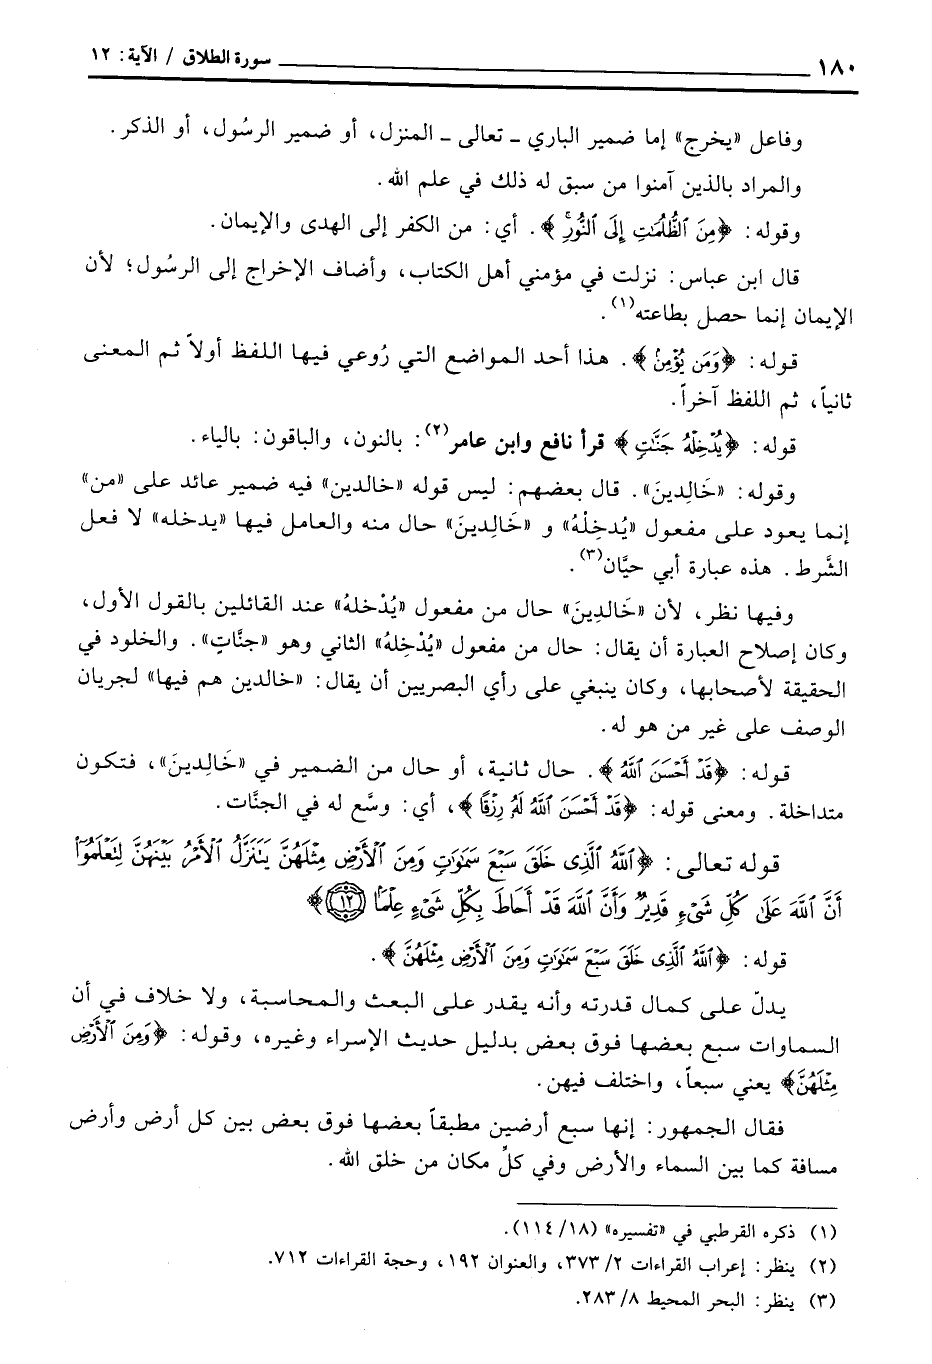 ١٨٠ سورة الطلاق / الآية: ١٢
وفاعل «يخرج» إما ضمير الباري ـ تعالى ـ المنزل، أو ضمير الرسُول، أو الذكر.
والمراد بالذين آمنوا من سبق له ذلك في علم الله.
وقوله: ﴿مِنَ ٱلظُّلُمَٰتِ إِلَى ٱلنُّورِۚ﴾. أي: من الكفر إلى الهدى والإيمان.
قال ابن عباس: نزلت في مؤمني أهل الكتاب، وأضاف الإخراج إلى الرسُول؛ لأن
الإيمان إنما حصل بطاعته(١).
قوله: ﴿وَمَن يُؤْمِنۢ﴾. هذا أحد المواضع التي رُوعي فيها اللفظ أولاً ثم المعنى
ثانياً، ثم اللفظ آخراً.
قوله: ﴿يُدْخِلْهُ جَنَّٰتٍ﴾ قرأ نافع وابن عامر(٢): بالنون، والباقون: بالياء.
وقوله: «خَالِدينَ». قال بعضهم: ليس قوله «خالدين» فيه ضمير عائد على «من»
إنما يعود على مفعول «يُدخِلْهُ» و «خَالِدِينَ» حال منه والعامل فيها «يدخله» لا فعل
الشَّرط. هذه عبارة أبي حيَّان(٣).
وفيها نظر، لأن «خَالدِينَ» حال من مفعول «يُدْخلهُ» عند القائلين بالقول الأول،
وكان إصلاح العبارة أن يقال: حال من مفعول «يُدْخِلهُ» الثاني وهو «جنَّاتٍ». والخلود في
الحقيقة لأصحابها، وكان ينبغي على رأي البصريين أن يقال: «خالدين هم فيها» لجريان
الوصف على غير من هو له.
قوله: ﴿قَدْ أَحْسَنَ ٱللَّهُ﴾. حال ثانية، أو حال من الضمير في «خَالِدينَ»، فتكون
متداخلة. ومعنى قوله: ﴿قَدْ أَحْسَنَ ٱللَّهُ لَهُۥ رِزْقًا﴾، أي: وسَّع له في الجنَّات.
قوله تعالى: ﴿ٱللَّهُ ٱلَّذِى خَلَقَ سَبْعَ سَمَٰوَٰتٍ وَمِنَ ٱلْأَرْضِ مِثْلَهُنَّ يَتَنَزَّلُ ٱلْأَمْرُ بَيْنَهُنَّ لِتَعْلَمُوٓا۟
أَنَّ ٱللَّهَ عَلَىٰ كُلِّ شَىْءٍ قَدِيرٌ وَأَنَّ ٱللَّهَ قَدْ أَحَاطَ بِكُلِّ شَىْءٍ عِلْمًۢا ١٢﴾
قوله: ﴿ٱللَّهُ ٱلَّذِى خَلَقَ سَبْعَ سَمَٰوَٰتٍ وَمِنَ ٱلْأَرْضِ مِثْلَهُنَّ﴾.
يدلّ على كمال قدرته وأنه يقدر على البعث والمحاسبة، ولا خلاف في أن
السماوات سبع بعضها فوق بعض بدليل حديث الإسراء وغيره، وقوله: ﴿وَمِنَ ٱلْأَرْضِ
مِثْلَهُنَّ﴾ يعني سبعاً، واختلف فيهن.
فقال الجمهور: إنها سبع أرضين مطبقاً بعضها فوق بعض بين كل أرض وأرض
مسافة كما بين السماء والأرض وفي كلِّ مكان من خلق الله.
(١) ذكره القرطبي في «تفسيره» (١٨/ ١١٤).
(٢) ينظر: إعراب القراءات ٢/ ٣٧٣، والعنوان ١٩٢، وحجة القراءات ٧١٢.
(٣) ينظر: البحر المحيط ٨/ ٢٨٣.